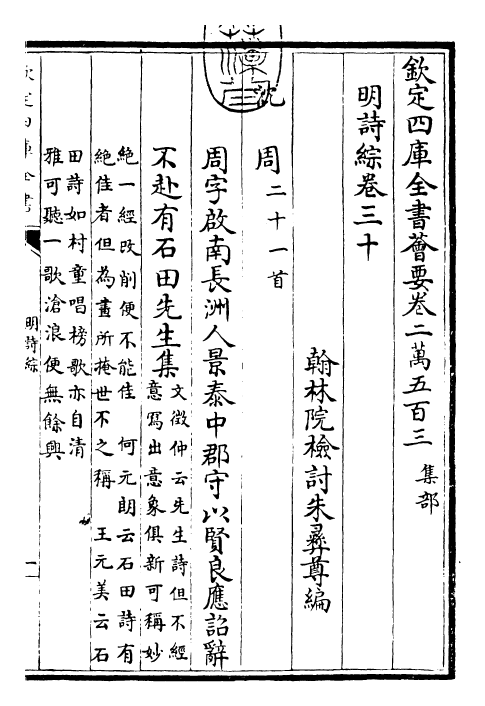 欽定四庫全書薈要卷二萬五百三 集部
明詩綜卷三十
翰林院檢討朱彝尊編
沈周二十一首
周字啟南長洲人景泰中郡守以賢良應詔辭
不赴有石田先生集
文徴仲云先生詩但不經
意寫出意象俱新可稱妙
絶一經改削便不能佳 何元朗云石田詩有
絶佳者但為畫所掩世不之稱 王元美云石
田詩如村童唱榜歌亦自清
雅可聽一歌滄浪便無餘興
欽定四庫全書
明詩綜
一